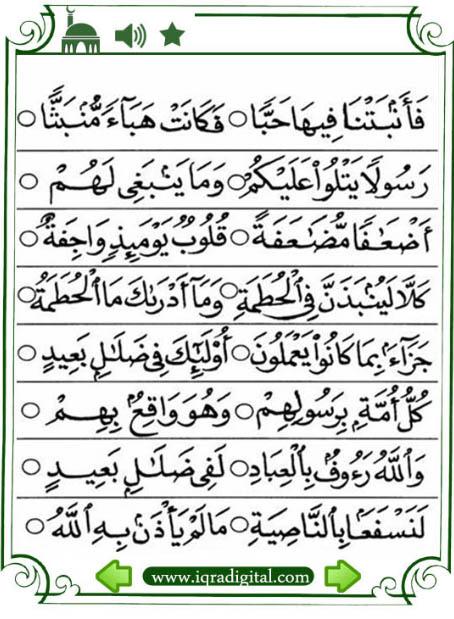 فَأَنۢبَتْنَا فِيهَا حَبًّا ○ فَكَانَتْ هَبَآءً مُّنۢبَثًّا ○
رَسُولًا يَتْلُوا۟ عَلَيْكُمْ ○ وَمَا يَنۢبَغِى لَهُمْ ○
أَضْعَـٰفًا مُّضَـٰعَفَةً ○ قُلُوبٌ يَوْمَئِذٍ وَاجِفَةٌ ○
كَلَّا لَيُنۢبَذَنَّ فِى ٱلْحُطَمَةِ ○ وَمَآ أَدْرَىٰكَ مَا ٱلْحُطَمَةُ ○
جَزَآءَۢ بِمَا كَانُوا۟ يَعْمَلُونَ ○ أُو۟لَـٰٓئِكَ فِى ضَلَـٰلٍۭ بَعِيدٍ ○
كُلُّ أُمَّةٍۭ بِرَسُولِهِمْ ○ وَهُوَ وَاقِعٌۢ بِهِمْ ○
وَٱللَّهُ رَءُوفٌۢ بِٱلْعِبَادِ ○ لَفِى ضَلَـٰلٍۭ بَعِيدٍ ○
لَنَسْفَعَۢا بِٱلنَّاصِيَةِ ○ مَا لَمْ يَأْذَنۢ بِهِ ٱللَّهُ ○
www.iqradigital.com